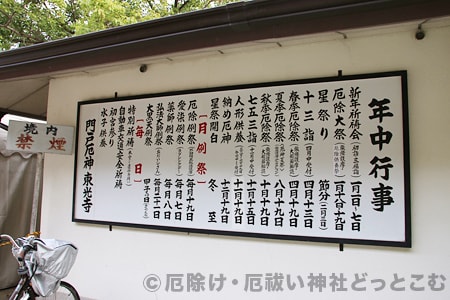 年中行事
新年祈祷会 一月一日~七日
厄除大祭 一月十八日十九日
星祭り 節分
十三詣 四月十三日
春季厄除祭 四月十九日
夏季厄除祭 八月十九日
秋季厄除祭 十月十九日
七五三詣 十一月十五日
人形供養 十一月十九日
納め厄神 十二月十九日
星祭開白 冬至
【月例祭】
厄除例祭 毎月十九日
愛染例祭 毎月七日
薬師例祭 毎月八日
弘法大師例祭 毎月二十一日
大黒天例祭
【毎日】
特別祈祷
自動車交通安全祈祷
初宮参り
水子供養
門戸厄神 東光寺
境内
禁煙
© 厄除け・厄祓い神社どっとこむ